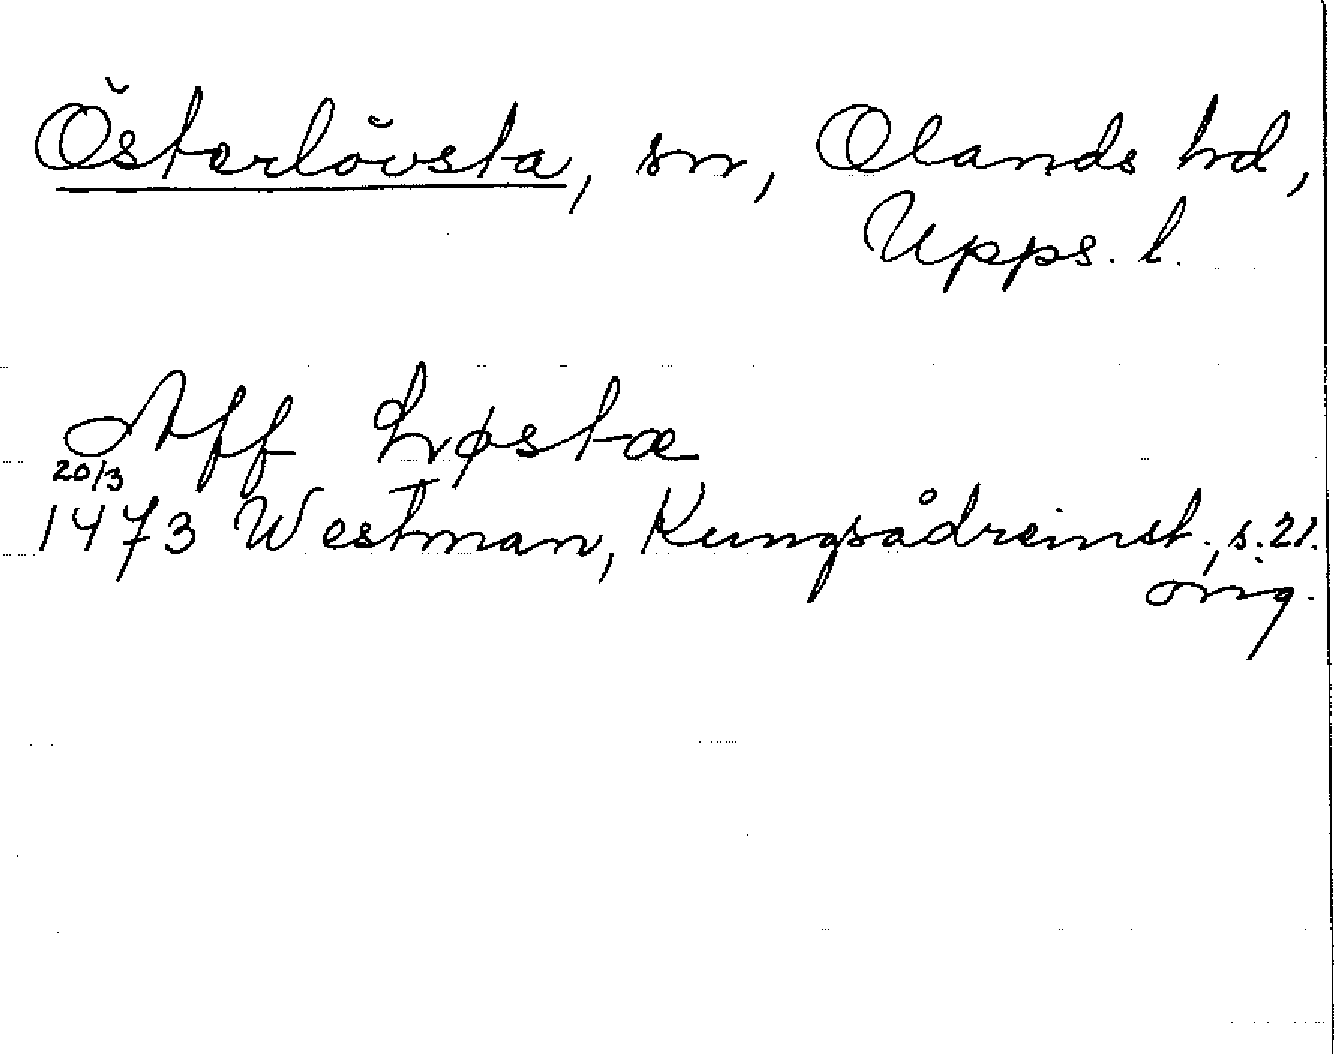 Österlövsta, sn, Olands hd,
Upps. l.
Aff Løstæ
20/3
1473 Westman, Kungsådreinst., s. 21.
orig.